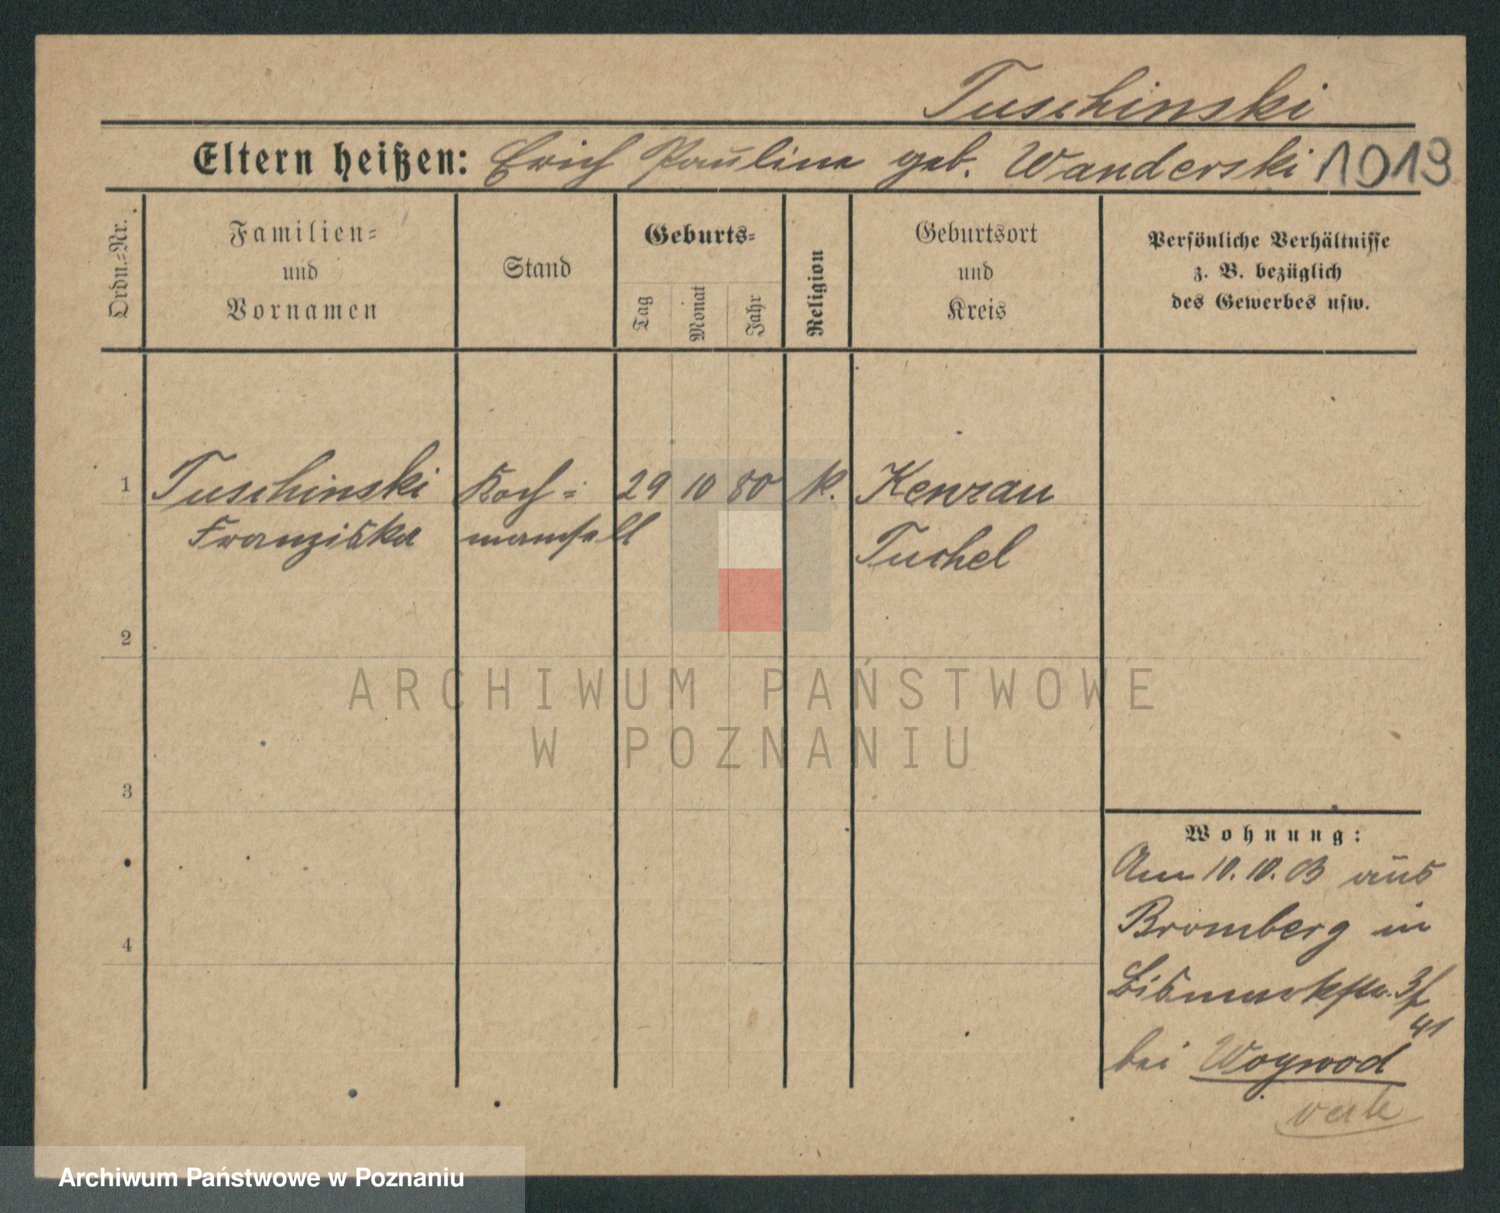 Tuschinski
Eltern heißen: Erich Paulina geb. Wanderski 1019
Ordn.-Nr.
Familien-
und
Vornamen
Stand
Geburts-
Tag
Monat
Jahr
Religion
Geburtsort
und
Kreis
Persönliche Verhältnisse
z. B. bezüglich
des Gewerbes usw.
1 Tuschinski Koch- 29 10 80 k. Kenrau
Franziska mamsell Tuchel
2
ARCHIWUM PAŃSTWOWE
W POZNANIU
3
Wohnung:
Am 10.10.03 aus
Bromberg in
4
Bismarkstr. 3/
41
bei Woywod
verte
Archiwum Państwowe w Poznaniu